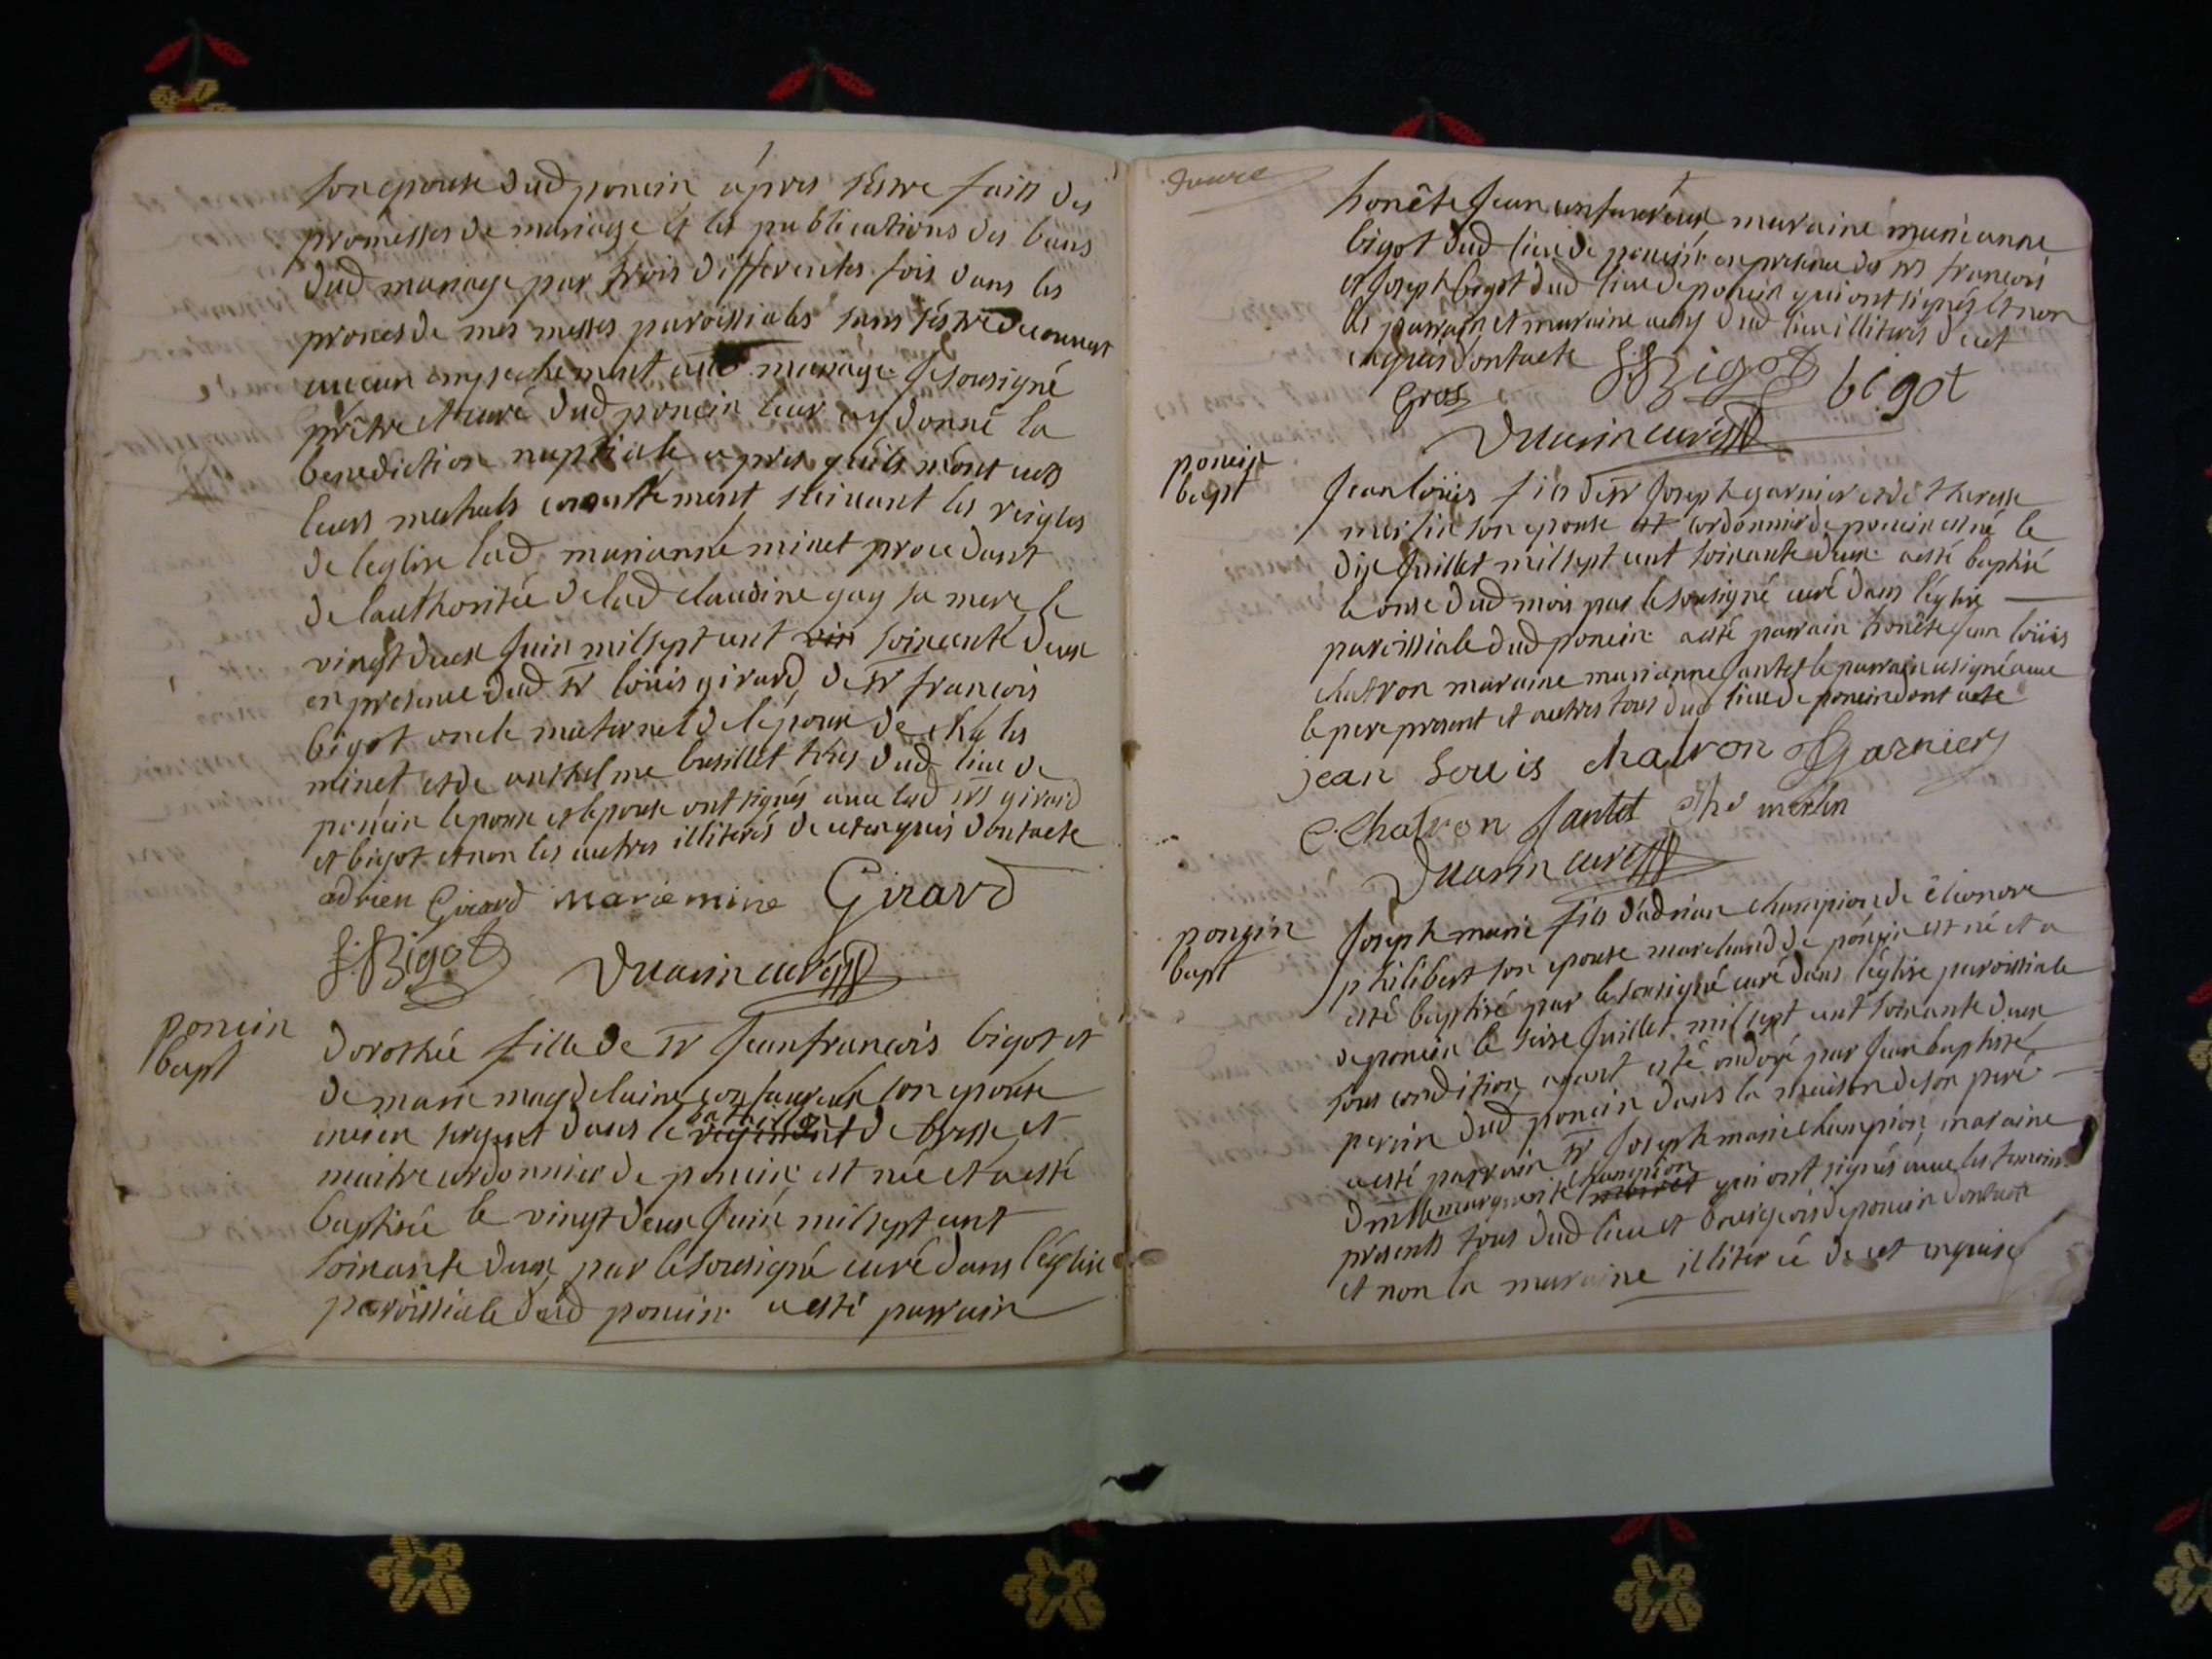 son epouse dud poncin apres s'estre faits des
promesses de mariage et les publications des bans
dud mariage par trois differentes fois dans les
prones de mes messes paroissiales sans s'estre decouvert
aucun empechement aud mariage. Je sousigné
prêtre et curé dud poncin leur ay donné la
benediction nuptiale apres qu'ils m'ont eux
leurs mutuels consentement suivant les reigles
de leglise lad marianne minet procedant
de lauthoritée de lad claudine gay sa mere le
vingt deux Juin mil sept cent soixante deux
en presence dud sr loüis girard de sr françois
bigot oncle maternel de lépoux de charles
minet et de anthelme busillet tous dud lieu de
poncin lepoux et lepouse ont signés avec lesd srs girard
et bigot et non les autres illiterés de ce enquis dont acte
adrien Girard marie mine Girard
f Bigot Duarin curé
poncin
bapt
Dorothée fille de sr Jean françois bigot et
de marie magdelaine son epouse
ancien sergent dans le bataillon regiment de bresse et
maitre cordonnier de poncin est née et a esté
baptisée le vingt deux Juin mil sept cent
soixante deux par le sousigné curé dans léglise
paroissiale dud poncin a esté parrain
honête Jean maraine marianne
bigot dud lieu de poncin en presence des srs françois
et Joseph bigot dud lieu de poncin qui ont signés et non
les parrain et maraine dud lieu illiterés de cet
enquis dont acte f Bigot bigot
Gros
Duarin curé
poncin
bapt
Jean loüis fils de sr Joseph garnier et de therese
merlin son epouse cordonnier de poncin est né le
dix Juillet mil sept cent soixante deux a esté baptisé
le onse dud mois par le sousigné curé dans léglise
paroissiale dud poncin a esté parrain honête Jean loüis
chatron maraine marianne Jantet le parrain a signé avec
le pere present et autres tous dud lieu de poncin dont acte
jean Louis chatron Garnier
C Chatron Jantet the merlin
Duarin curé
poncin
bapt
Joseph marie fils d'adrian champion de éleonore
philibert son epouse marchand de poncin est né et a
esté baptisé par le sousigné curé dans l'église paroissiale
de poncin le seise Juillet mil sept cent soixante deux
sous condition ayant esté ondoyé par Jean baptiste
perrin dud poncin dans la maison de son pere
a esté parrain sr Joseph marie champion maraine
dmlle marguerite champion qui ont signés avec les temoins
presents tous dud lieu et bourgeois de poncin dont acte
et non la maraine illiterée de cet enquise